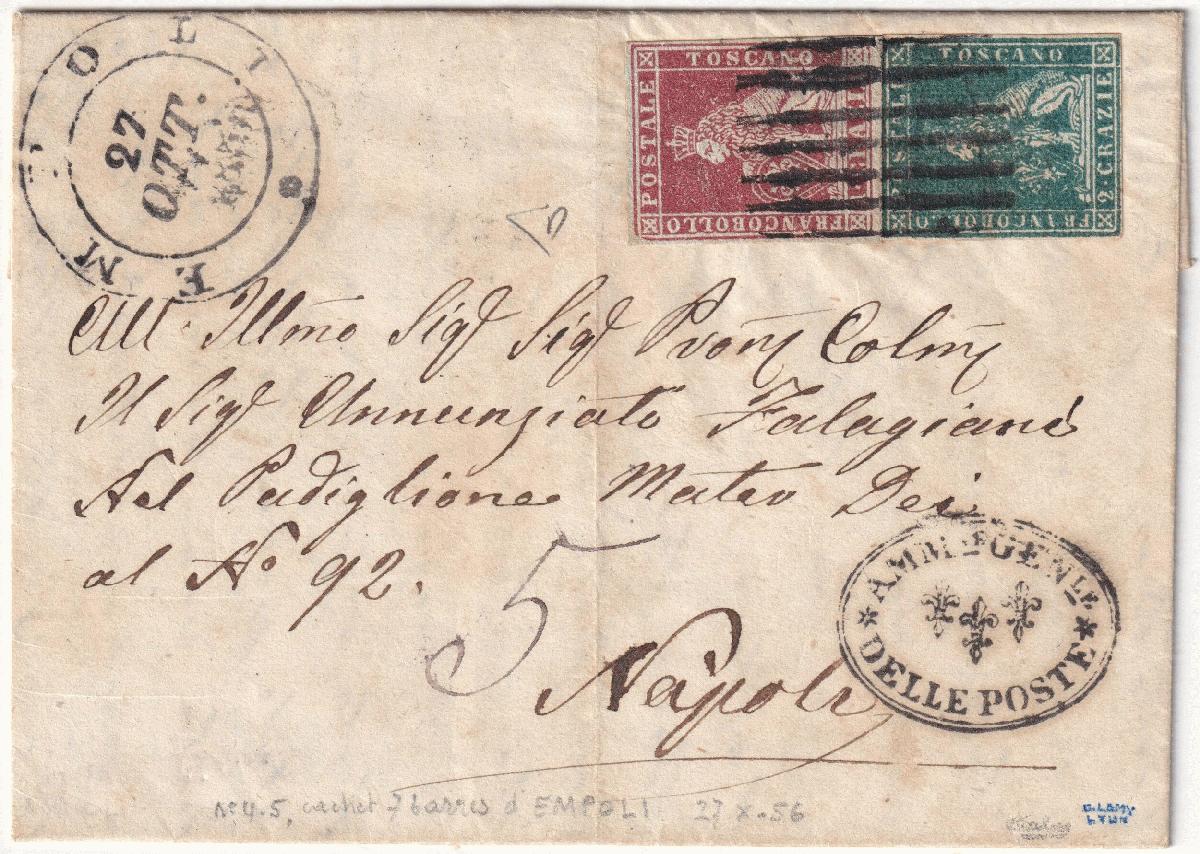 EMPOLI
27
OTT.
FRANCOBOLLO POSTALE TOSCANO
FRANCOBOLLO TOSCANO 2 CRAZIE
All' Illmo Sigr Sigr Pron Colmo
Il Sigr Annunziato Falagiani
Nel Padiglione Mateo Dei
al No 92.
5
Napoli
AMMNE GENLE
DELLE POSTE
No 4.5, cachet 7 barres d'EMPOLI 27 X-56
G. LAMY
LYON